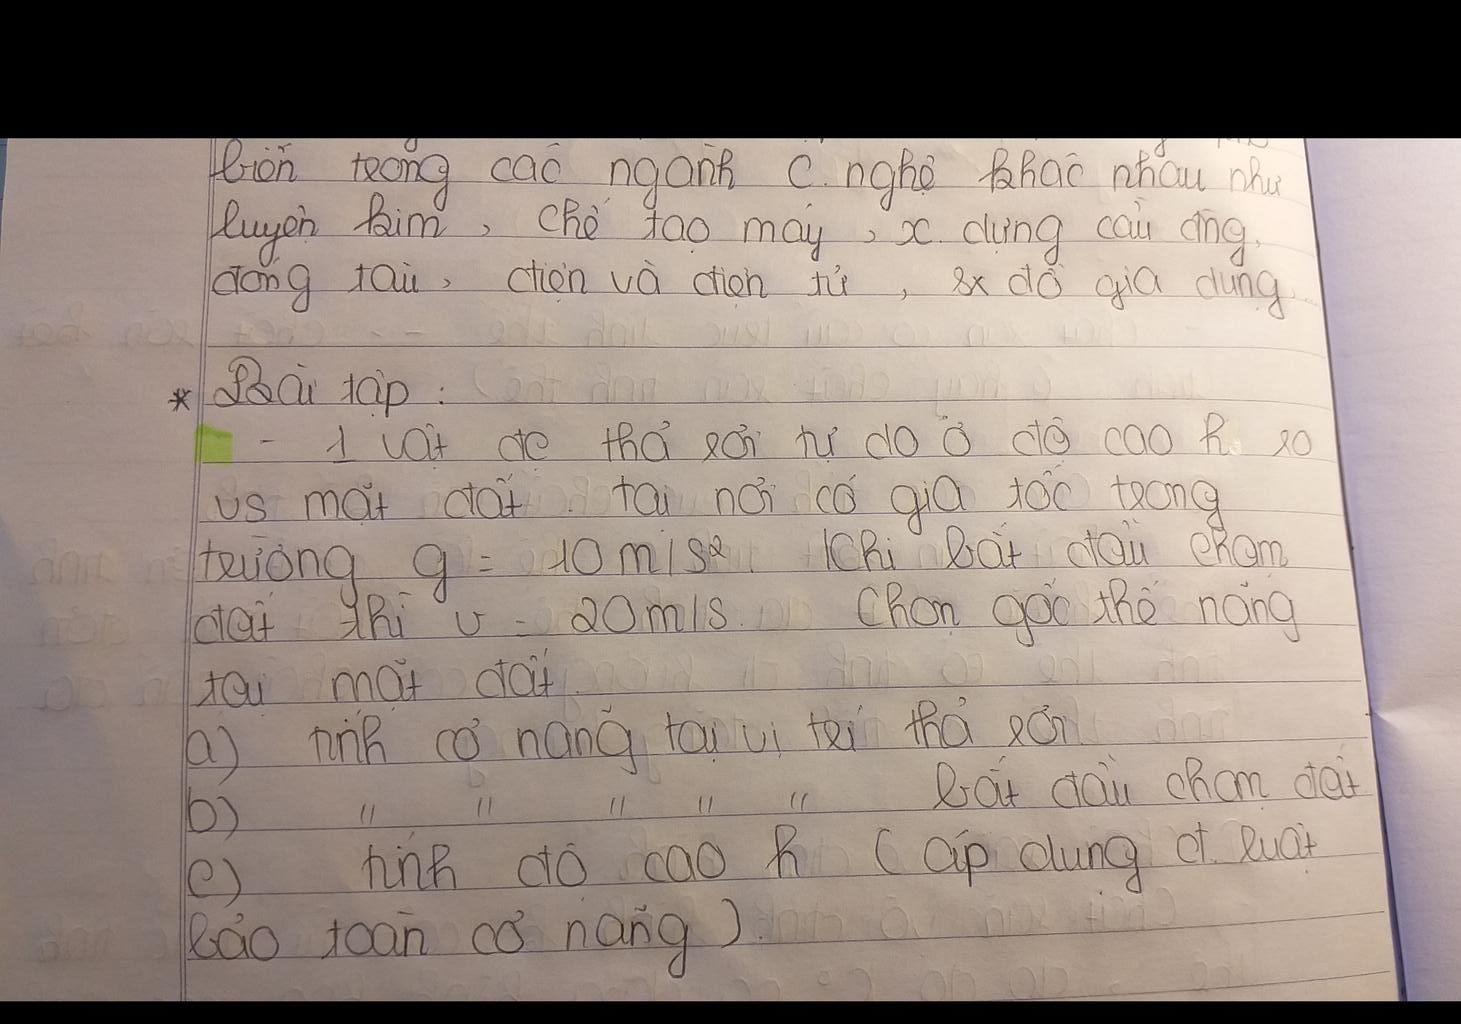 biến trong các ngành c. nghệ khác nhau như
luyện kim, chế tạo máy, x. dựng cầu đng,
đóng tàu, điện và điện tử, sx đồ gia dụng
* Bài tập :
- 1 vật đc thả rơi tự do ở độ cao h so
vs mặt đất. tại nơi có gia tốc trọng
trường g = 10m/s2. Khi bắt đầu chạm
đất thì v = 20m/s. Chọn gốc thế năng
tại mặt đất.
a) tính cơ năng tại vị trí thả rơi
b) " " " " " bắt đầu chạm đất
c) tính độ cao h (áp dụng đ. luật
bảo toàn cơ năng).